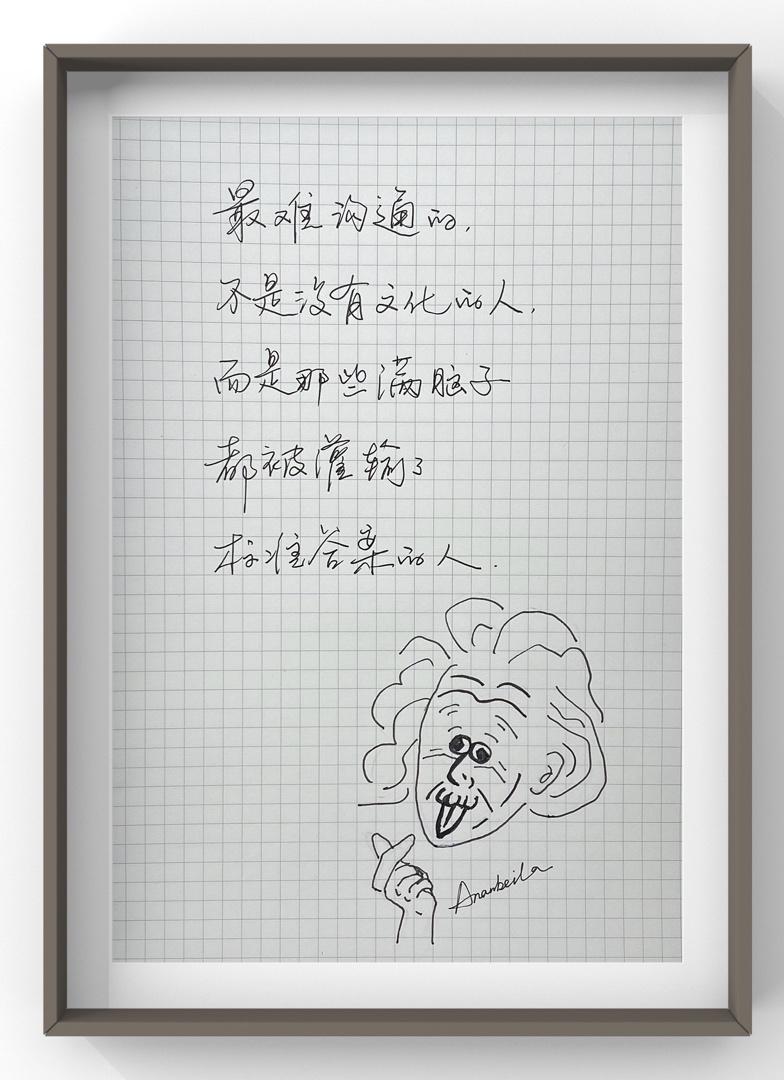 最难沟通的,
不是没有文化的人,
而是那些满脑子
都被灌输了
标准答案的人.
Ananbeila